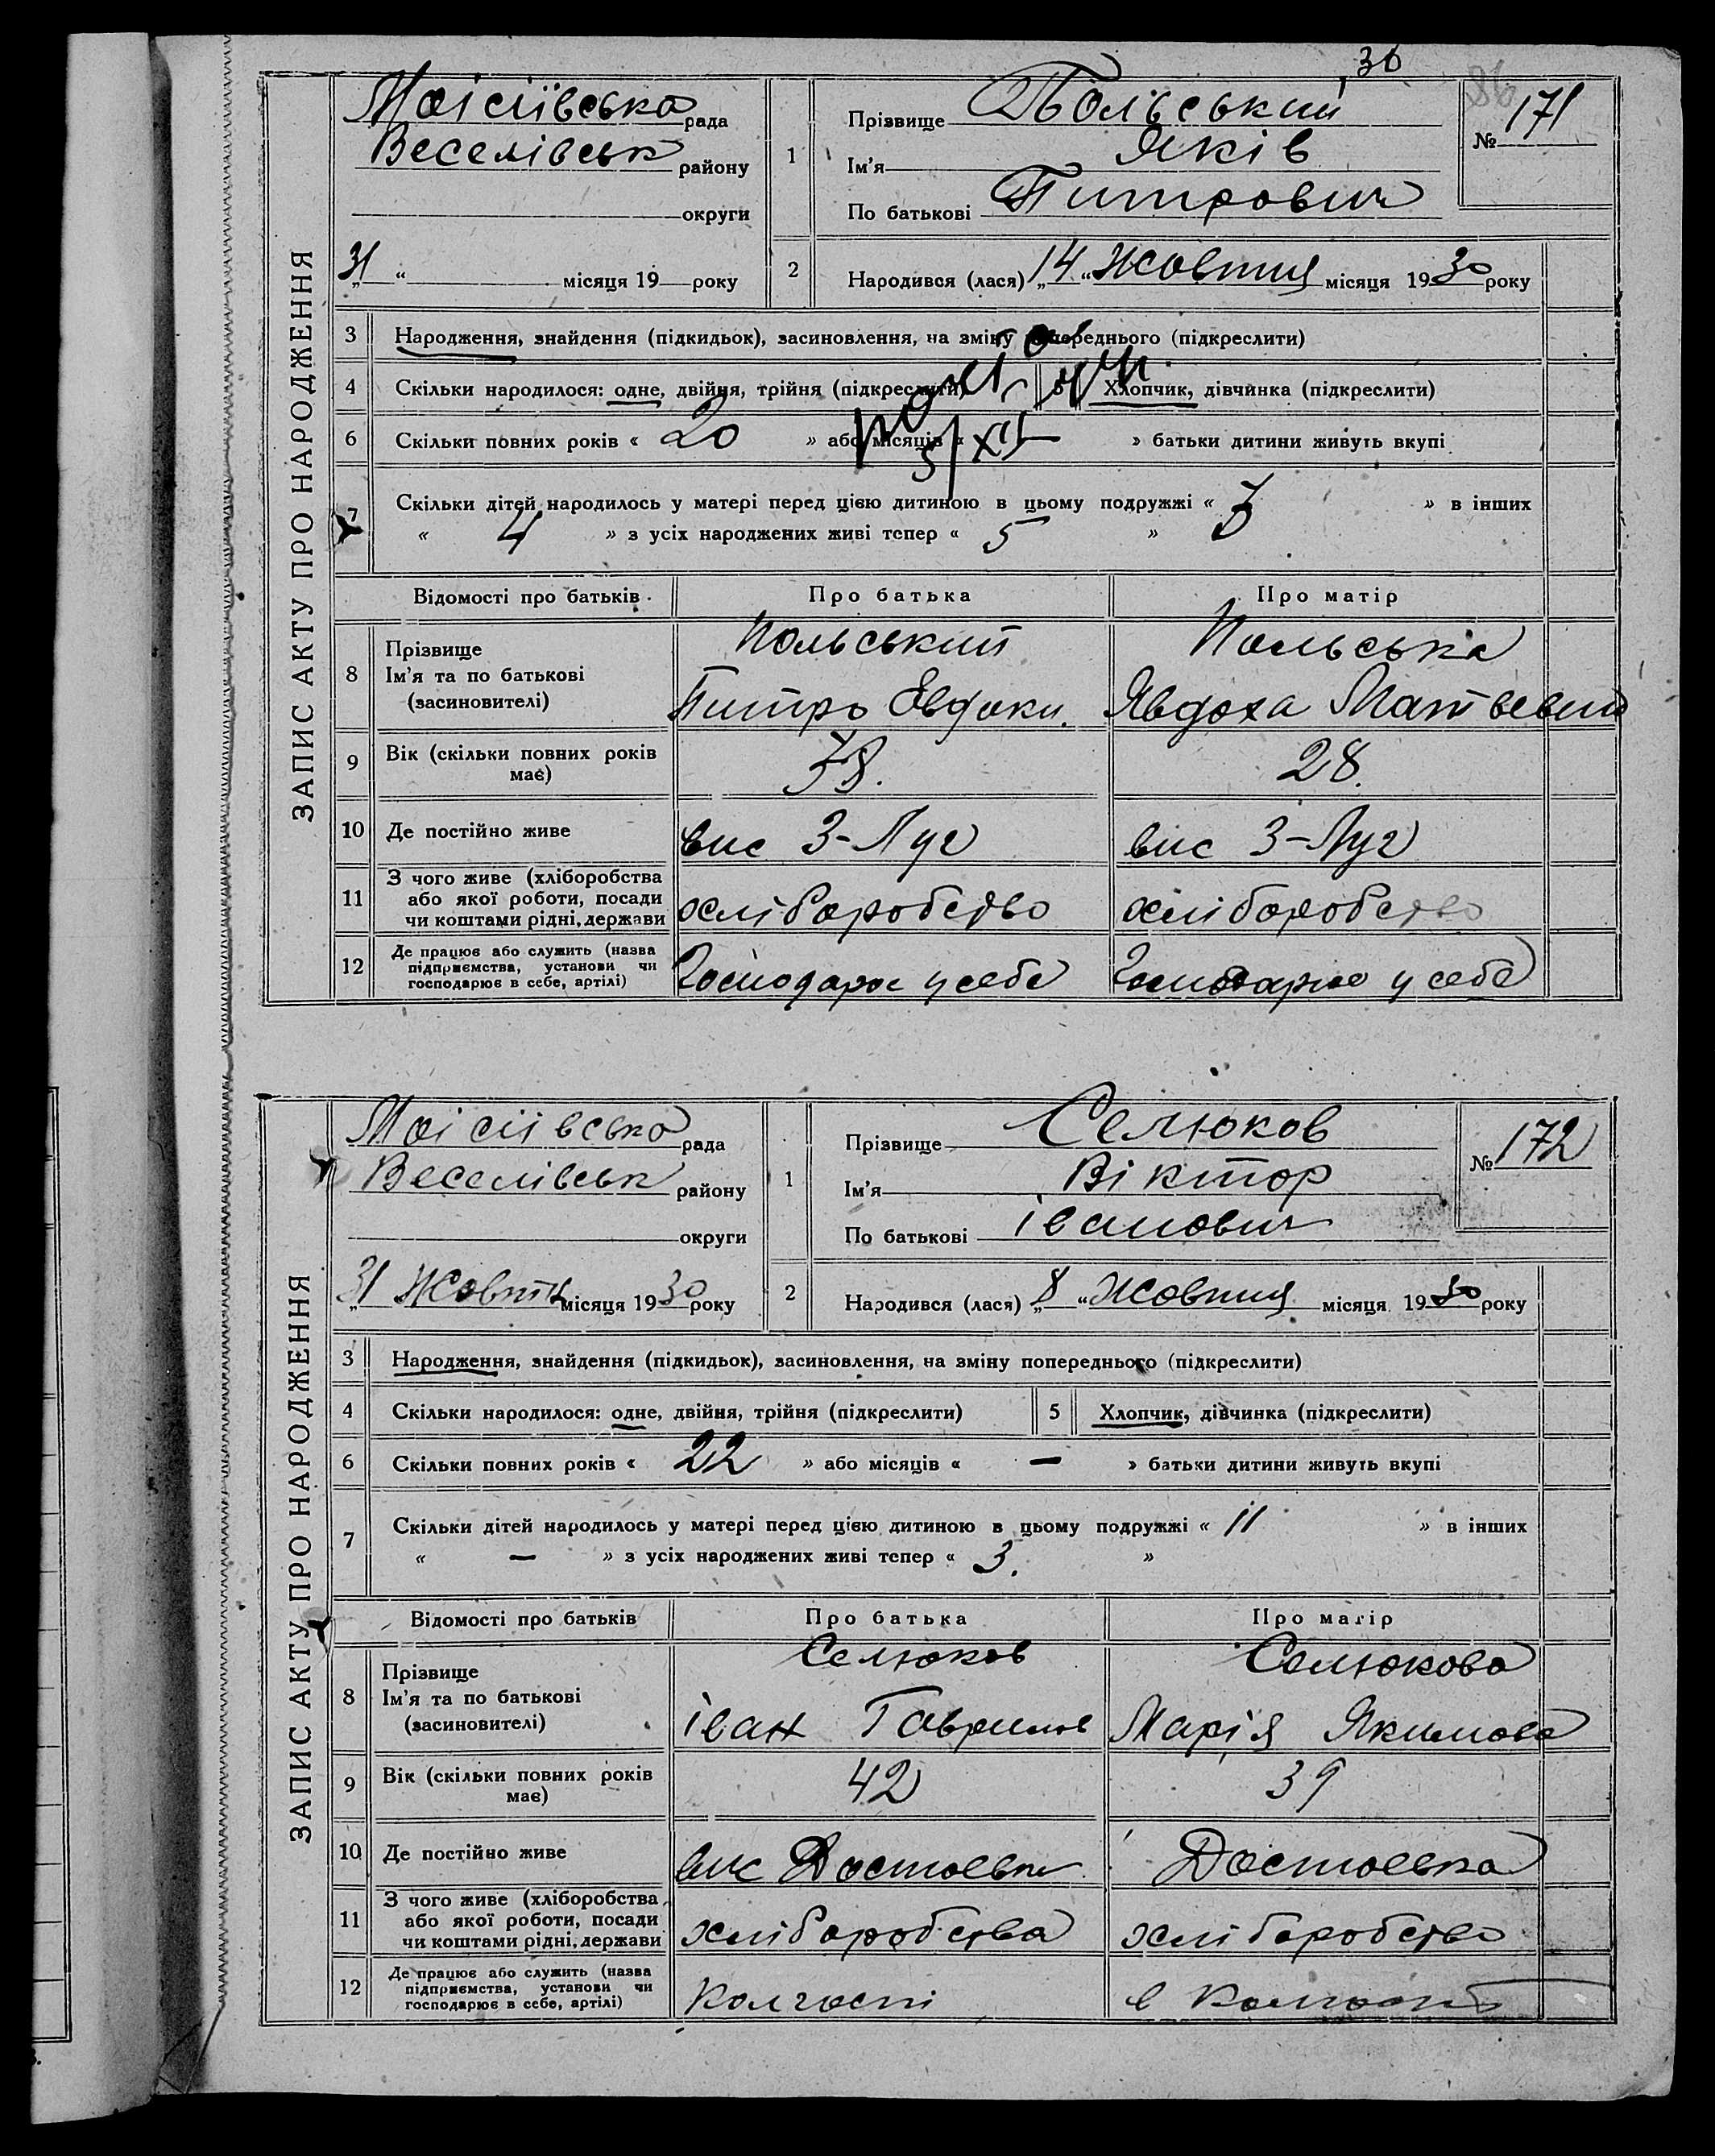 36
ЗАПИС АКТУ ПРО НАРОДЖЕННЯ
Моісіївська рада
Веселівськ району
округи
31 місяця 19 року
1 Прізвище Польський
Ім'я Яків
По батькові Питрович
№ 171
2 Народився (лася) „14“ Жовтня місяця 1930 року
3 Народження, знайдення (підкидьок), засиновлення, на зміну попереднього (підкреслити)
4 Скільки народилося: одне, двійня, трійня (підкреслити) 5 Хлопчик, дівчинка (підкреслити)
6 Скільки повних років « 20 » або місяців « » батьки дитини живуть вкупі
7 Скільки дітей народилось у матері перед цією дитиною в цьому подружжі « » в інших
« 4 » з усіх народжених живі тепер « 5 »
Відомості про батьків Про батька Про матір
8 Прізвище Польський Польська
Ім'я та по батькові
(засновителі) Питро Евдоки. Явдоха Матвевна
9 Вік (скільки повних років має) 38. 28.
10 Де постійно живе вис З-Луг вис З-Луг
11 З чого живе (хліборобства
або якої роботи, посади
чи коштами рідні, держави хліборобство хліборобство
12 Де працює або служить (назва
підприємства, установи чи
господарює в себе, артілі) Господарює у себе у себе
ЗАПИС АКТУ ПРО НАРОДЖЕННЯ
Моісіївська рада
Веселівськ району
округи
„31 Жовтня місяця 1930 року
1 Прізвище Селюков
Ім'я Віктор
По батькові іванович
№ 172
2 Народився (лася) „8“ Жовтня місяця 1930 року
3 Народження, знайдення (підкидьок), засиновлення, на зміну попереднього (підкреслити)
4 Скільки народилося: одне, двійня, трійня (підкреслити) 5 Хлопчик, дівчинка (підкреслити)
6 Скільки повних років « 22 » або місяців « — » батьки дитини живуть вкупі
7 Скільки дітей народилось у матері перед цією дитиною в цьому подружжі « 11 » в інших
« — » з усіх народжених живі тепер « 3. »
Відомості про батьків Про батька Про матір
8 Прізвище Селюков Селюкова
Ім'я та по батькові
(засиновителі) іван Гаврилов Марія Якимова
9 Вік (скільки повних років має) 42 39
10 Де постійно живе вис Достоевка Достоевка
11 З чого живе (хліборобства
або якої роботи, посади
чи коштами рідні, держави хліборобства хліборобство
12 Де працює або служить (назва
підприємства, установи чи
господарює в себе, артілі) Колгоспі в Колгоспі